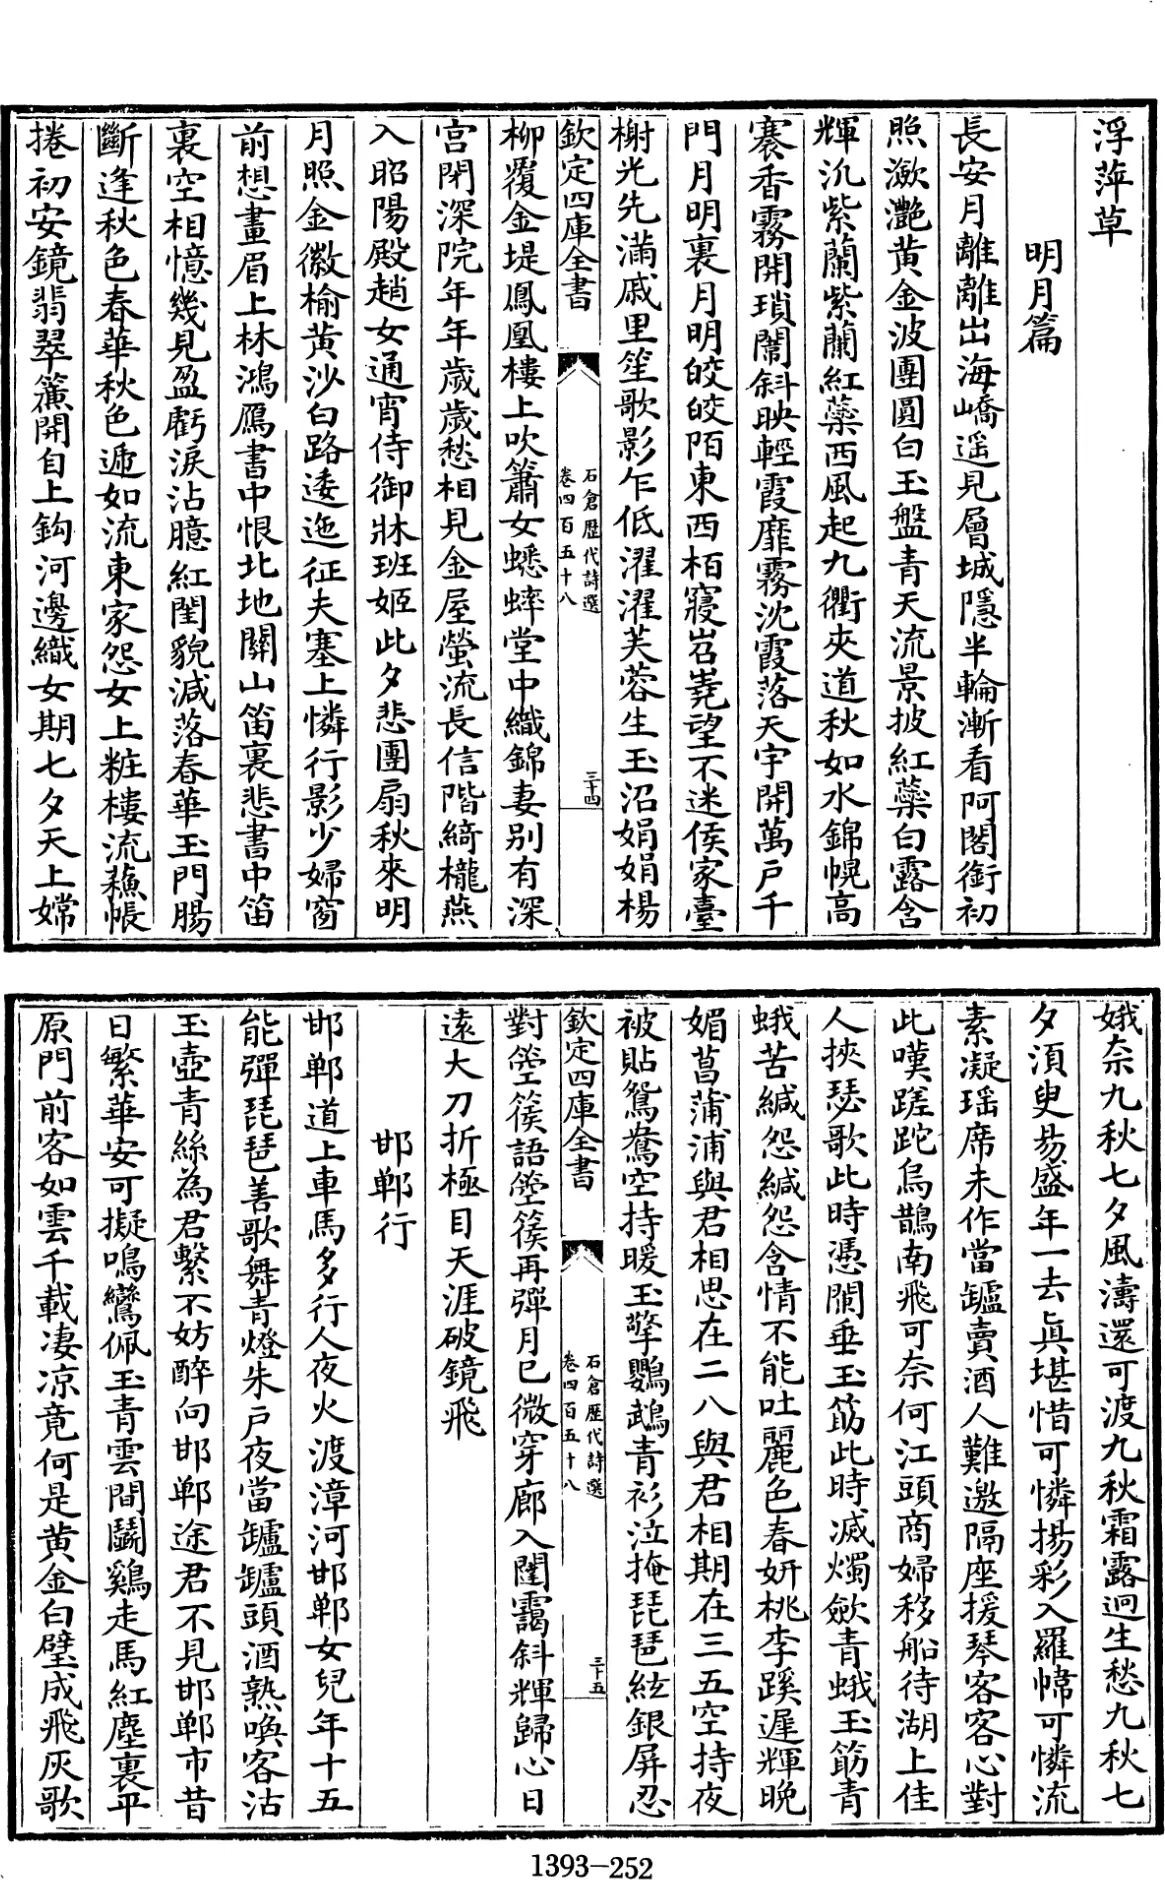 浮萍草
明月篇
長安月離離出海嶠遥見層城隱半輪漸看阿閣銜初
照瀲灧黄金波團圓白玉盤青天流景披紅蘂白露含
輝汎紫蘭紫蘭紅藥西風起九衢夾道秋如水錦幌高
褰香霧開瑣闈斜映輕霞靡霧沈霞落天宇開萬戶千
門月明裏月明皎皎陌東西栢寢岧嶤望不迷侯家臺
榭光先滿戚里笙歌影乍低濯濯芙蓉生玉沼娟娟楊
欽定四庫全書
石倉歴代詩選
卷四百五十八
三十四
柳覆金堤鳳凰樓上吹簫女蟋蟀堂中織錦妻别有深
宫閉深院年年歲歲愁相見金屋螢流長信階綺櫳燕
入昭陽殿趙女通宵侍御牀班姬此夕悲團扇秋來明
月照金徽榆黄沙白路逶迤征夫塞上憐行影少婦窗
前想畫眉上林鴻鴈書中恨北地關山笛裏悲書中笛
裏空相憶幾見盈虧淚沾臆紅閨貌減落春華玉門腸
斷逢秋色春華秋色遞如流東家怨女上粧樓流蘓帳
捲初安鏡翡翠簾開自上鈎河邊織女期七夕天上嫦
娥奈九秋七夕風濤還可渡九秋霜露迥生愁九秋七
夕須臾易盛年一去眞堪惜可憐揚彩入羅幃可憐流
素凝瑶席未作當罏賣酒人難邀隔座援琴客客心對
此嘆蹉跎烏鵲南飛可奈何江頭商婦移船待湖上佳
人挾瑟歌此時憑闌垂玉筯此時滅燭歛青蛾玉筯青
蛾苦緘怨緘怨含情不能吐麗色春妍桃李蹊遲輝晚
媚菖蒲浦與君相思在二八與君相期在三五空持夜
被貼鴛鴦空持暖玉擎鸚鵡青衫泣掩琵琶絃銀屏忍
欽定四庫全書
石倉歴代詩選
卷四百五十八
三十五
對箜篌語箜篌再彈月已微穿廊入闥靄斜輝歸心日
遠大刀折極目天涯破鏡飛
邯鄲行
邯鄲道上車馬多行人夜火渡漳河邯鄲女兒年十五
能彈琵琶善歌舞青燈朱戶夜當罏罏頭酒熟喚客沽
玉壺青絲為君繫不妨醉向邯鄲途君不見邯鄲市昔
日繁華安可擬鳴鸞佩玉青雲間鬭鷄走馬紅塵裏平
原門前客如雲千載凄凉竟何是黄金白璧成飛灰歌
1393-252